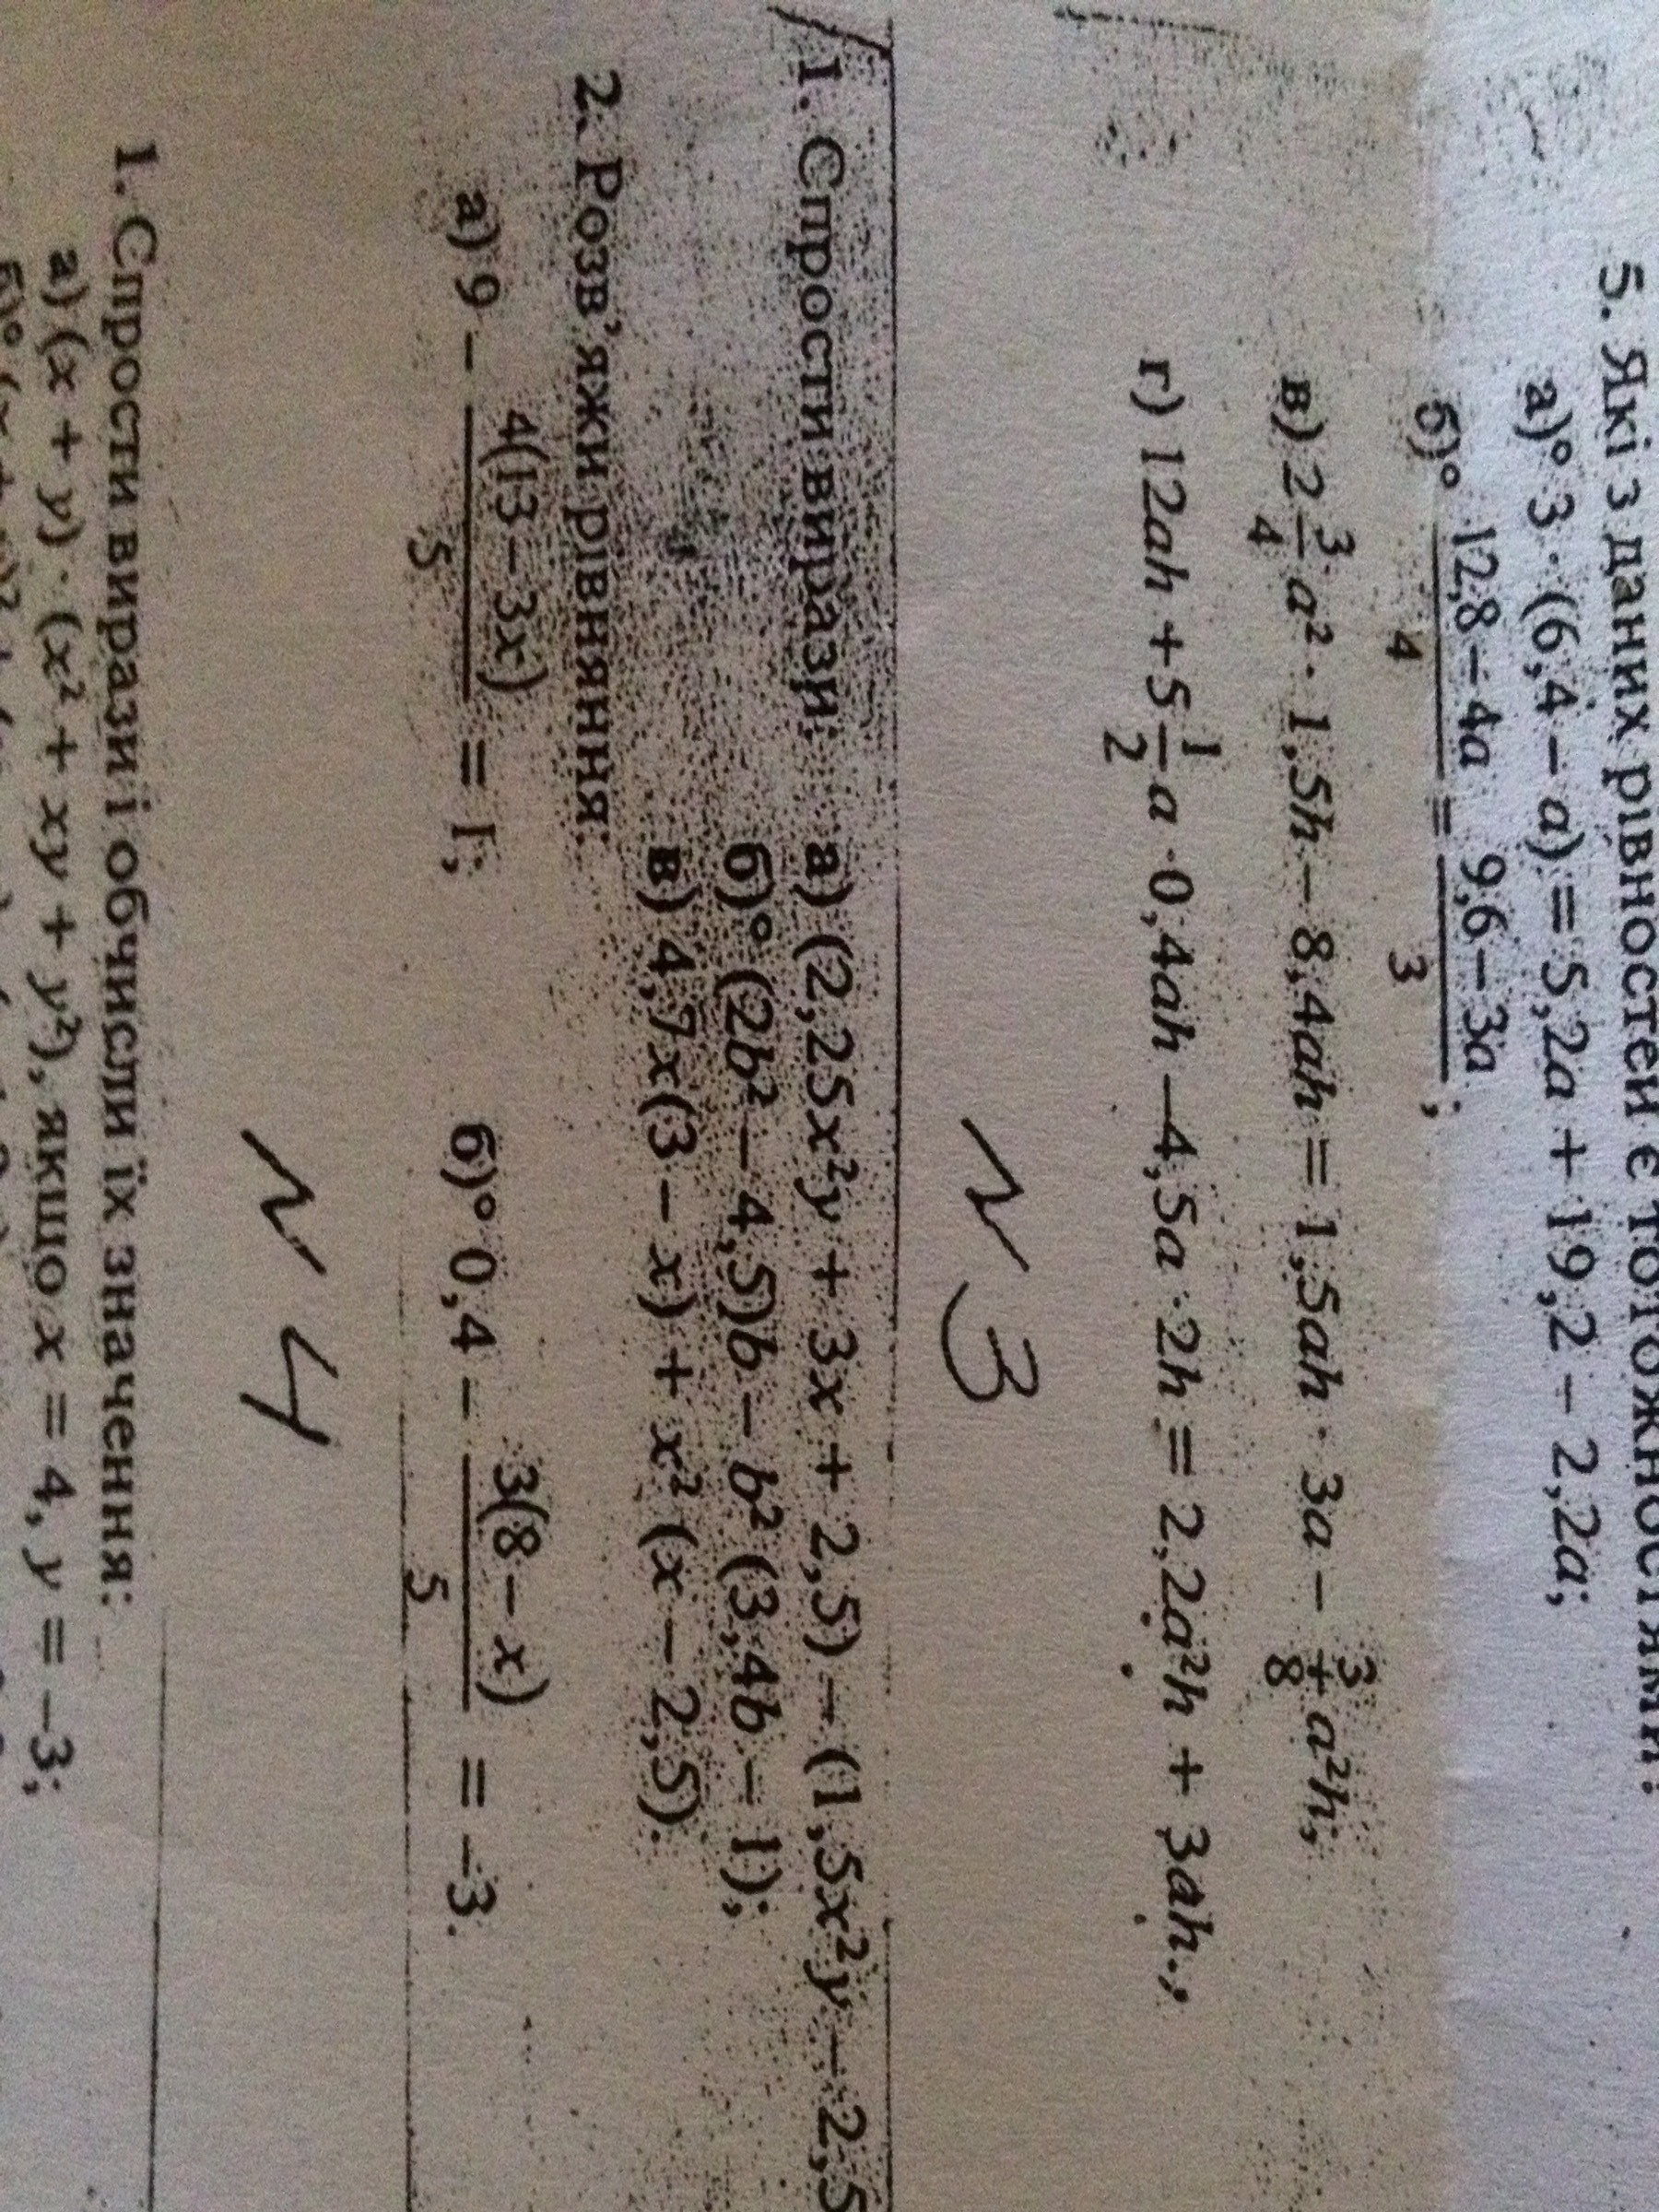 5. Які з даних рівностей є тотожностями:
а)° 3 · (6,4 – a) = 5,2a + 19,2 – 2,2a;
б)° (12,8 – 4a)/4 = (9,6 – 3a)/3;
в) 2 3/4 a² · 1,5h – 8,4ah = 1,5ah · 3a –
г) 12ah + 5 1/2 a · 0,4ah – 4,5a · 2h = 2,2a²h + 3ah.,
N 3
1. Спрости вирази: а) (2,25x²y + 3x + 2,5) – (1,5x²y – 2,5
б)° (2b² – 4,5)b – b² (3,4b – 1);
в) 4,7x(3 – x) + x² (x – 2,5).
2. Розв’яжи рівняння:
а) 9 – 4(13 – 3x)/5 = 1; б)° 0,4 – 3(8 – x)/5 = –3.
N 4
1. Спрости вирази і обчисли їх значення:
а) (x + y) · (x² + xy + y²), якщо x = 4, y = –3;